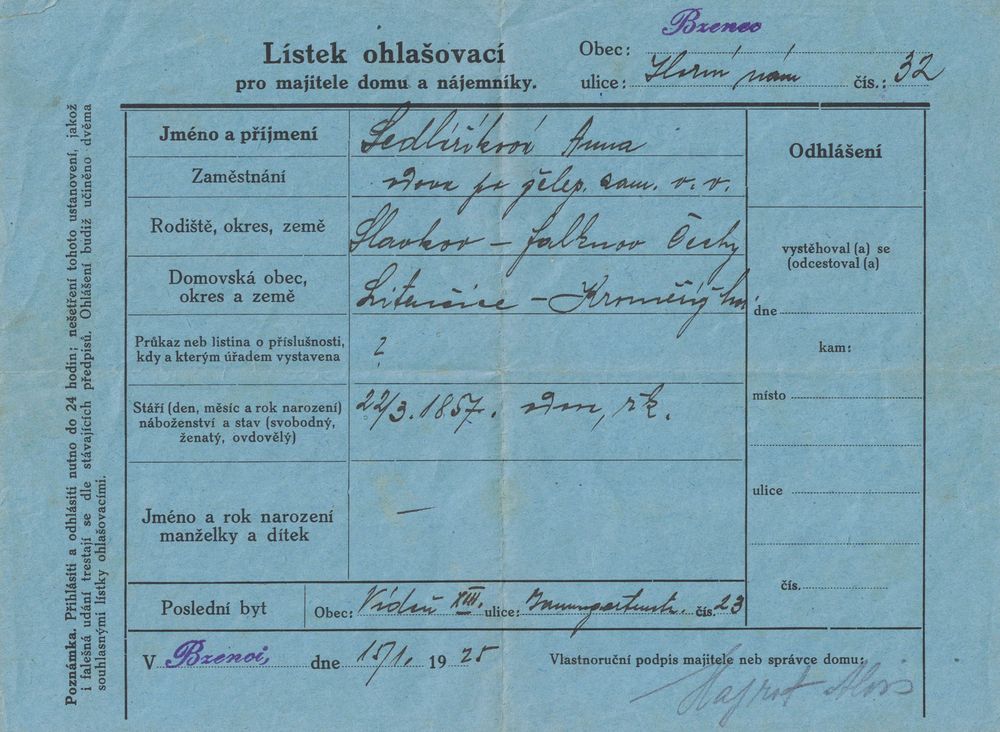 Lístek ohlašovací
pro majitele domu a nájemníky.
Obec: Bzenec
ulice: Horní nám čís.: 32
Jméno a příjmení Sedlíříková Anna
Zaměstnání vdova po želez. zam. v. v.
Rodiště, okres, země Slavkov – Falknov Čechy
Domovská obec,
okres a země Litenčice – Kroměříž
Průkaz neb listina o příslušnosti,
kdy a kterým úřadem vystavena ?
Stáří (den, měsíc a rok narození)
náboženství a stav (svobodný,
ženatý, ovdovělý) 22/3. 1857. vdov, řk.
Jméno a rok narození
manželky a dítek —
Poslední byt Obec: Vídeň XIII. ulice: čís. 23
V Bzenci, dne 15/1. 1925
Odhlášení
vystěhoval (a) se
(odcestoval (a)
dne
kam:
místo
ulice
čís.
Vlastnoruční podpis majitele neb správce domu:
Alois
Poznámka. Přihlásiti a odhlásiti nutno do 24 hodin; nešetření tohoto ustanovení, jakož
i falešná udání trestají se dle stávajících předpisů. Ohlášení budiž učiněno dvěma
souhlasnými lístky ohlašovacími.